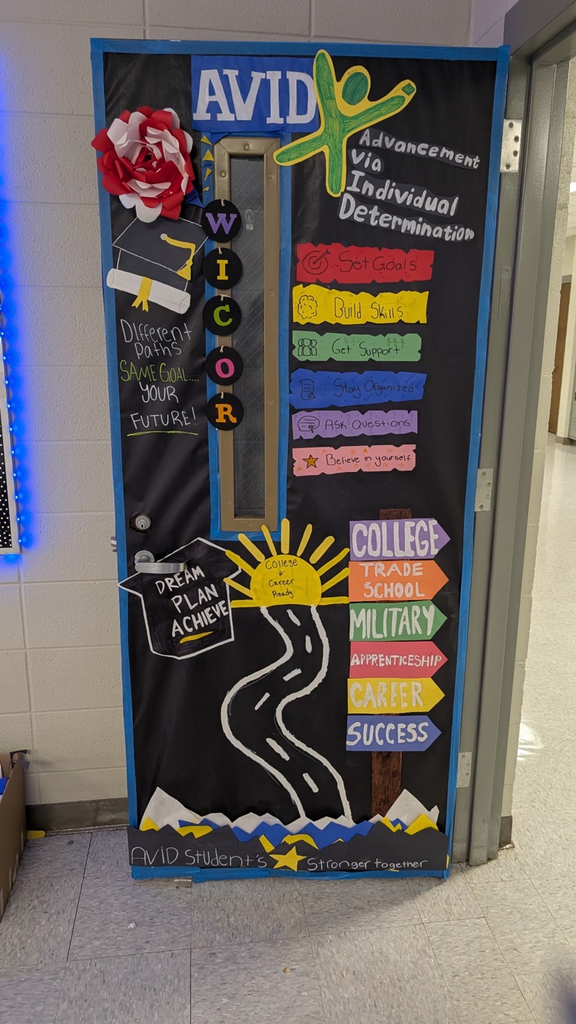 AVID
Advancement
Via
Individual
Determination
W
I
C
O
R
Different
Paths
SAME GOAL....
YOUR
FUTURE!
Set Goals
Build Skills
Get Support
Stay Organized
Ask Questions
Believe in yourself
DREAM
PLAN
ACHIEVE
College
&
Career
Ready
COLLEGE
TRADE
SCHOOL
MILITARY
APPRENTICESHIP
CAREER
SUCCESS
AVID Student's Stronger together